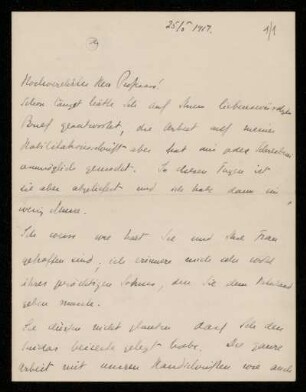 25/5 1917.
1/1
Hochverehrter Herr Professor!
Schon längst hätte ich auf Ihren liebenswürdigen
Brief geantwortet, die Arbeit auf meiner
Habilitationsschrift aber hat mir jedes Schreiben
unmöglich gemacht. In diesen Tagen ist
sie aber abgeliefert und ich habe dann ein
wenig
Ich weiss wie hart Sie und Ihre Frau
getroffen sind; ich erinnere mich sehr wohl
ihres prächtigen Sohnes, den Sie dem Vaterland
geben mussten.
Sie dürfen nicht glauben dass ich den
Suidas beiseite gelegt habe. Die ganze
Arbeit mit unseren Handschriften wie auch